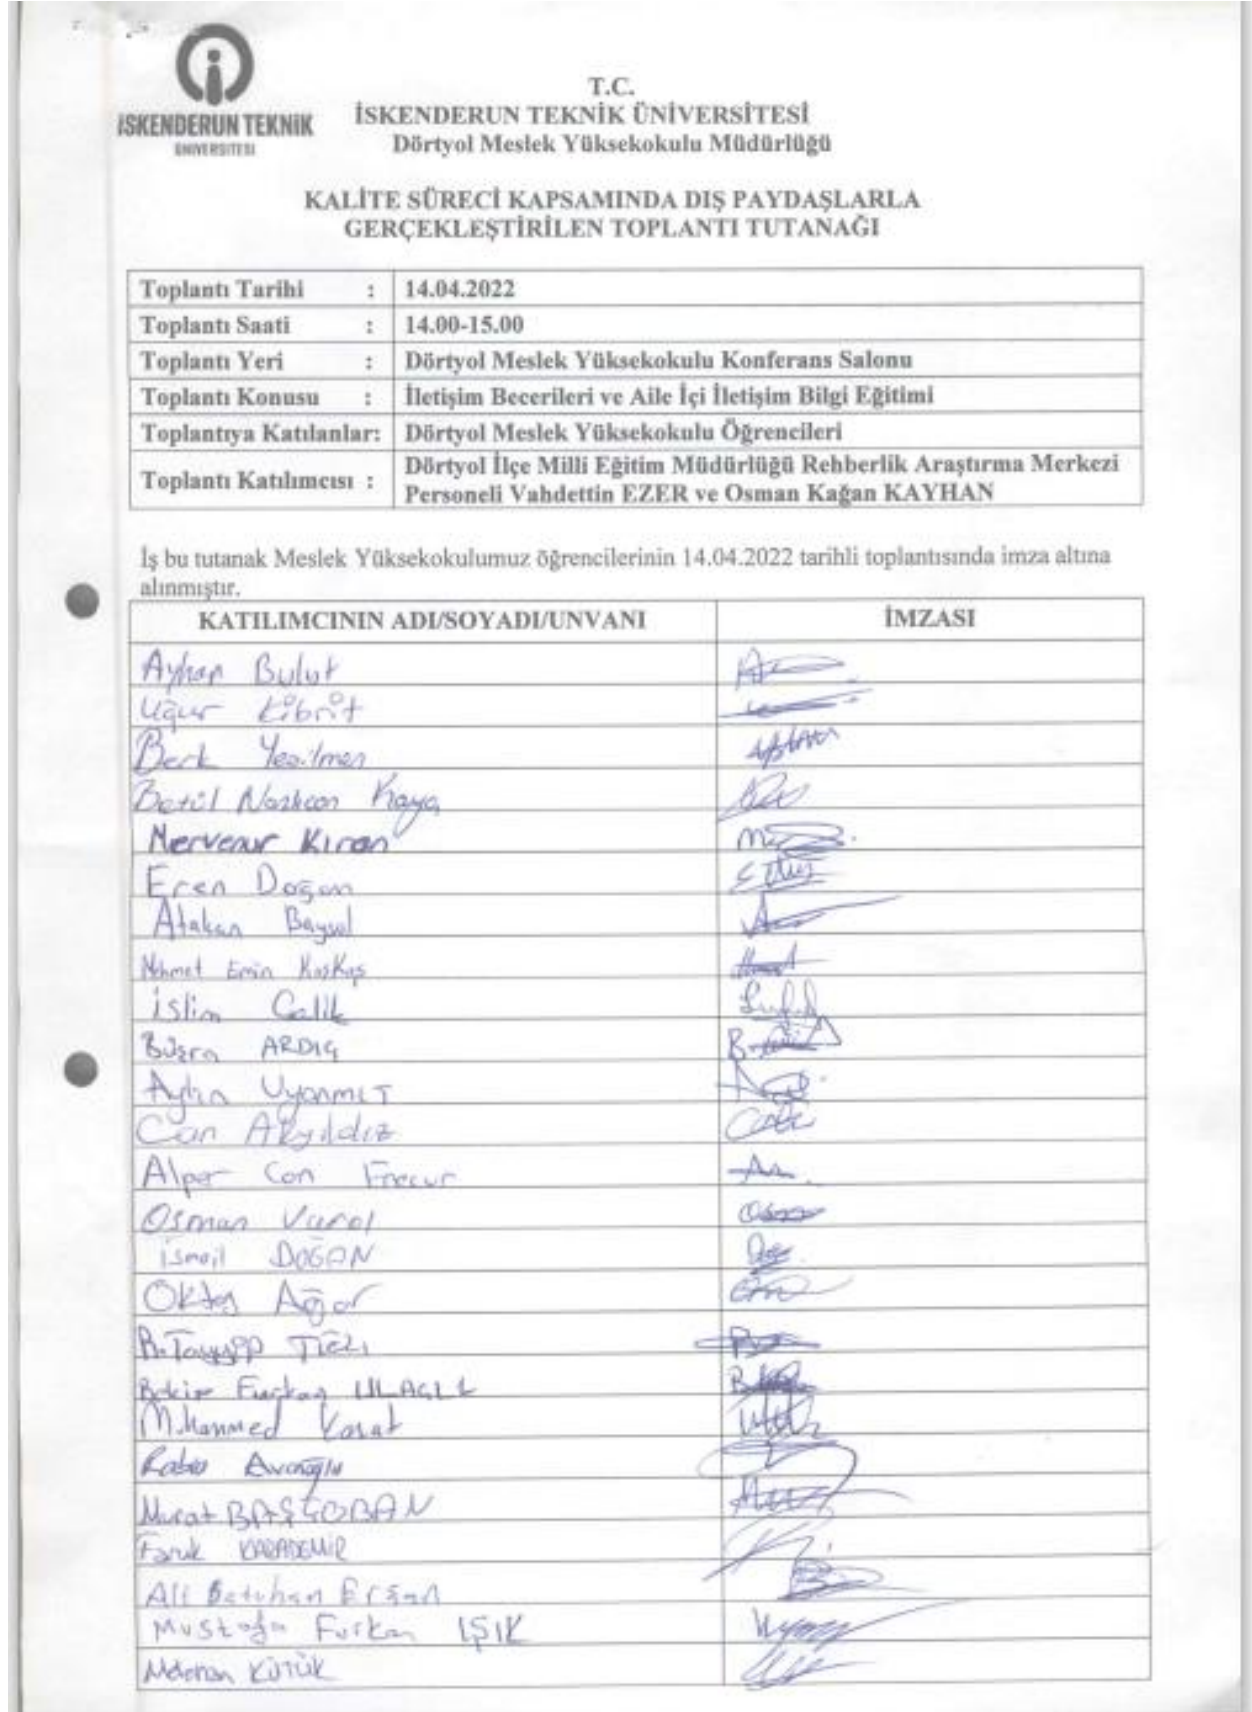 İSKENDERUN TEKNİK
ÜNİVERSİTESİ
T.C.
İSKENDERUN TEKNİK ÜNİVERSİTESİ
Dörtyol Meslek Yüksekokulu Müdürlüğü
KALİTE SÜRECİ KAPSAMINDA DIŞ PAYDAŞLARLA
GERÇEKLEŞTİRİLEN TOPLANTI TUTANAĞI
Toplantı Tarihi : 14.04.2022
Toplantı Saati : 14.00-15.00
Toplantı Yeri : Dörtyol Meslek Yüksekokulu Konferans Salonu
Toplantı Konusu : İletişim Becerileri ve Aile İçi İletişim Bilgi Eğitimi
Toplantıya Katılanlar: Dörtyol Meslek Yüksekokulu Öğrencileri
Toplantı Katılımcısı : Dörtyol İlçe Milli Eğitim Müdürlüğü Rehberlik Araştırma Merkezi
Personeli Vahdettin EZER ve Osman Kağan KAYHAN
İş bu tutanak Meslek Yüksekokulumuz öğrencilerinin 14.04.2022 tarihli toplantısında imza altına
alınmıştır.
KATILIMCININ ADI/SOYADI/UNVANI İMZASI
Ayhan Bulut
Uğur Kibrit
Berk Yeşilmen
Betül Kaya
Mervenur Kıran
Eren Doğan
Atakan Baysal
Mehmet Emin
İslim Çalik
Büşra ARDIÇ
Uyanmıt
Can Akyıldız
Alper Can
Osman Varol
İsmail DOĞAN
Oktay Ağar
R. Tayyip
Bekir Furkan
Muhammed
Rabia Avanoğlu
Murat BAŞÇOBAN
Faruk KARADEMİR
Ali Batuhan Ersan
Mustafa Furkan IŞIK
Metehan KÜTÜK